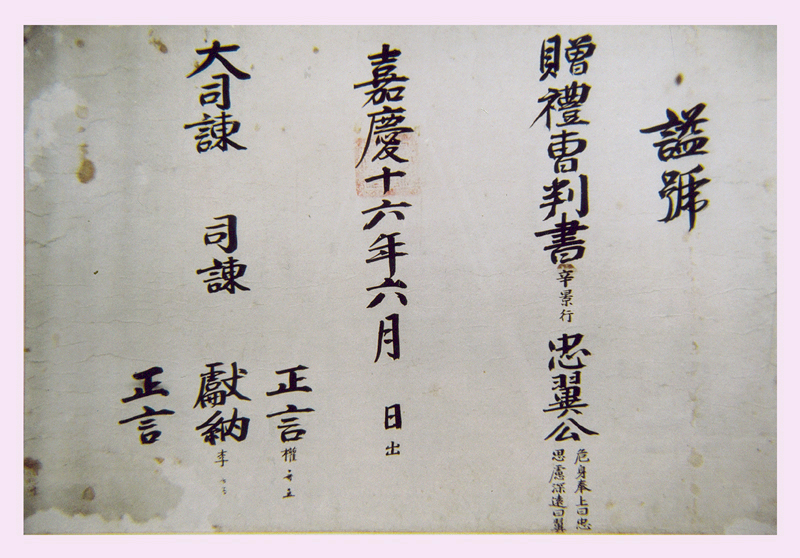 諡號
贈禮曹判書辛景行 忠翼公 危身奉上曰忠 思慮深遠曰翼
嘉慶十六年六月 日出
正言 權
大司諫 司諫 獻納 李
正言